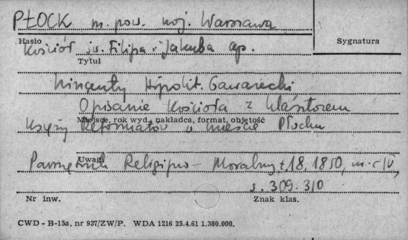 PŁOCK m. pow. woj. Warszawa
Hasło
Sygnatura
Kościół św. Filipa i Jakuba ap.
Tytuł
Wincenty Hipolit. Gawarecki
Opisanie Kościoła z klasztorem
Miejsce, rok wyd., nakładca, format, objętość
Księży Reformatów w mieście Płocku
Uwagi
Pamiętnik Religijno-Moralny t. 18, 1850,
s. 309-310
Nr inw.
Znak klas.
CWD - B-15a, nr 927/ZW/P. WDA 1216 25.4.61 1.380.000.